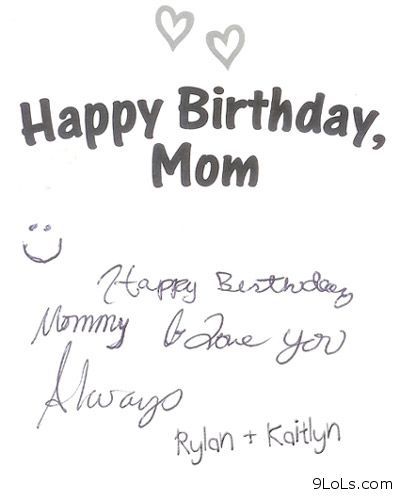 Happy Birthday,
Mom
Happy Birthday
Mommy I Love you
Always
Rylan + Kaitlyn
9LoLs.com